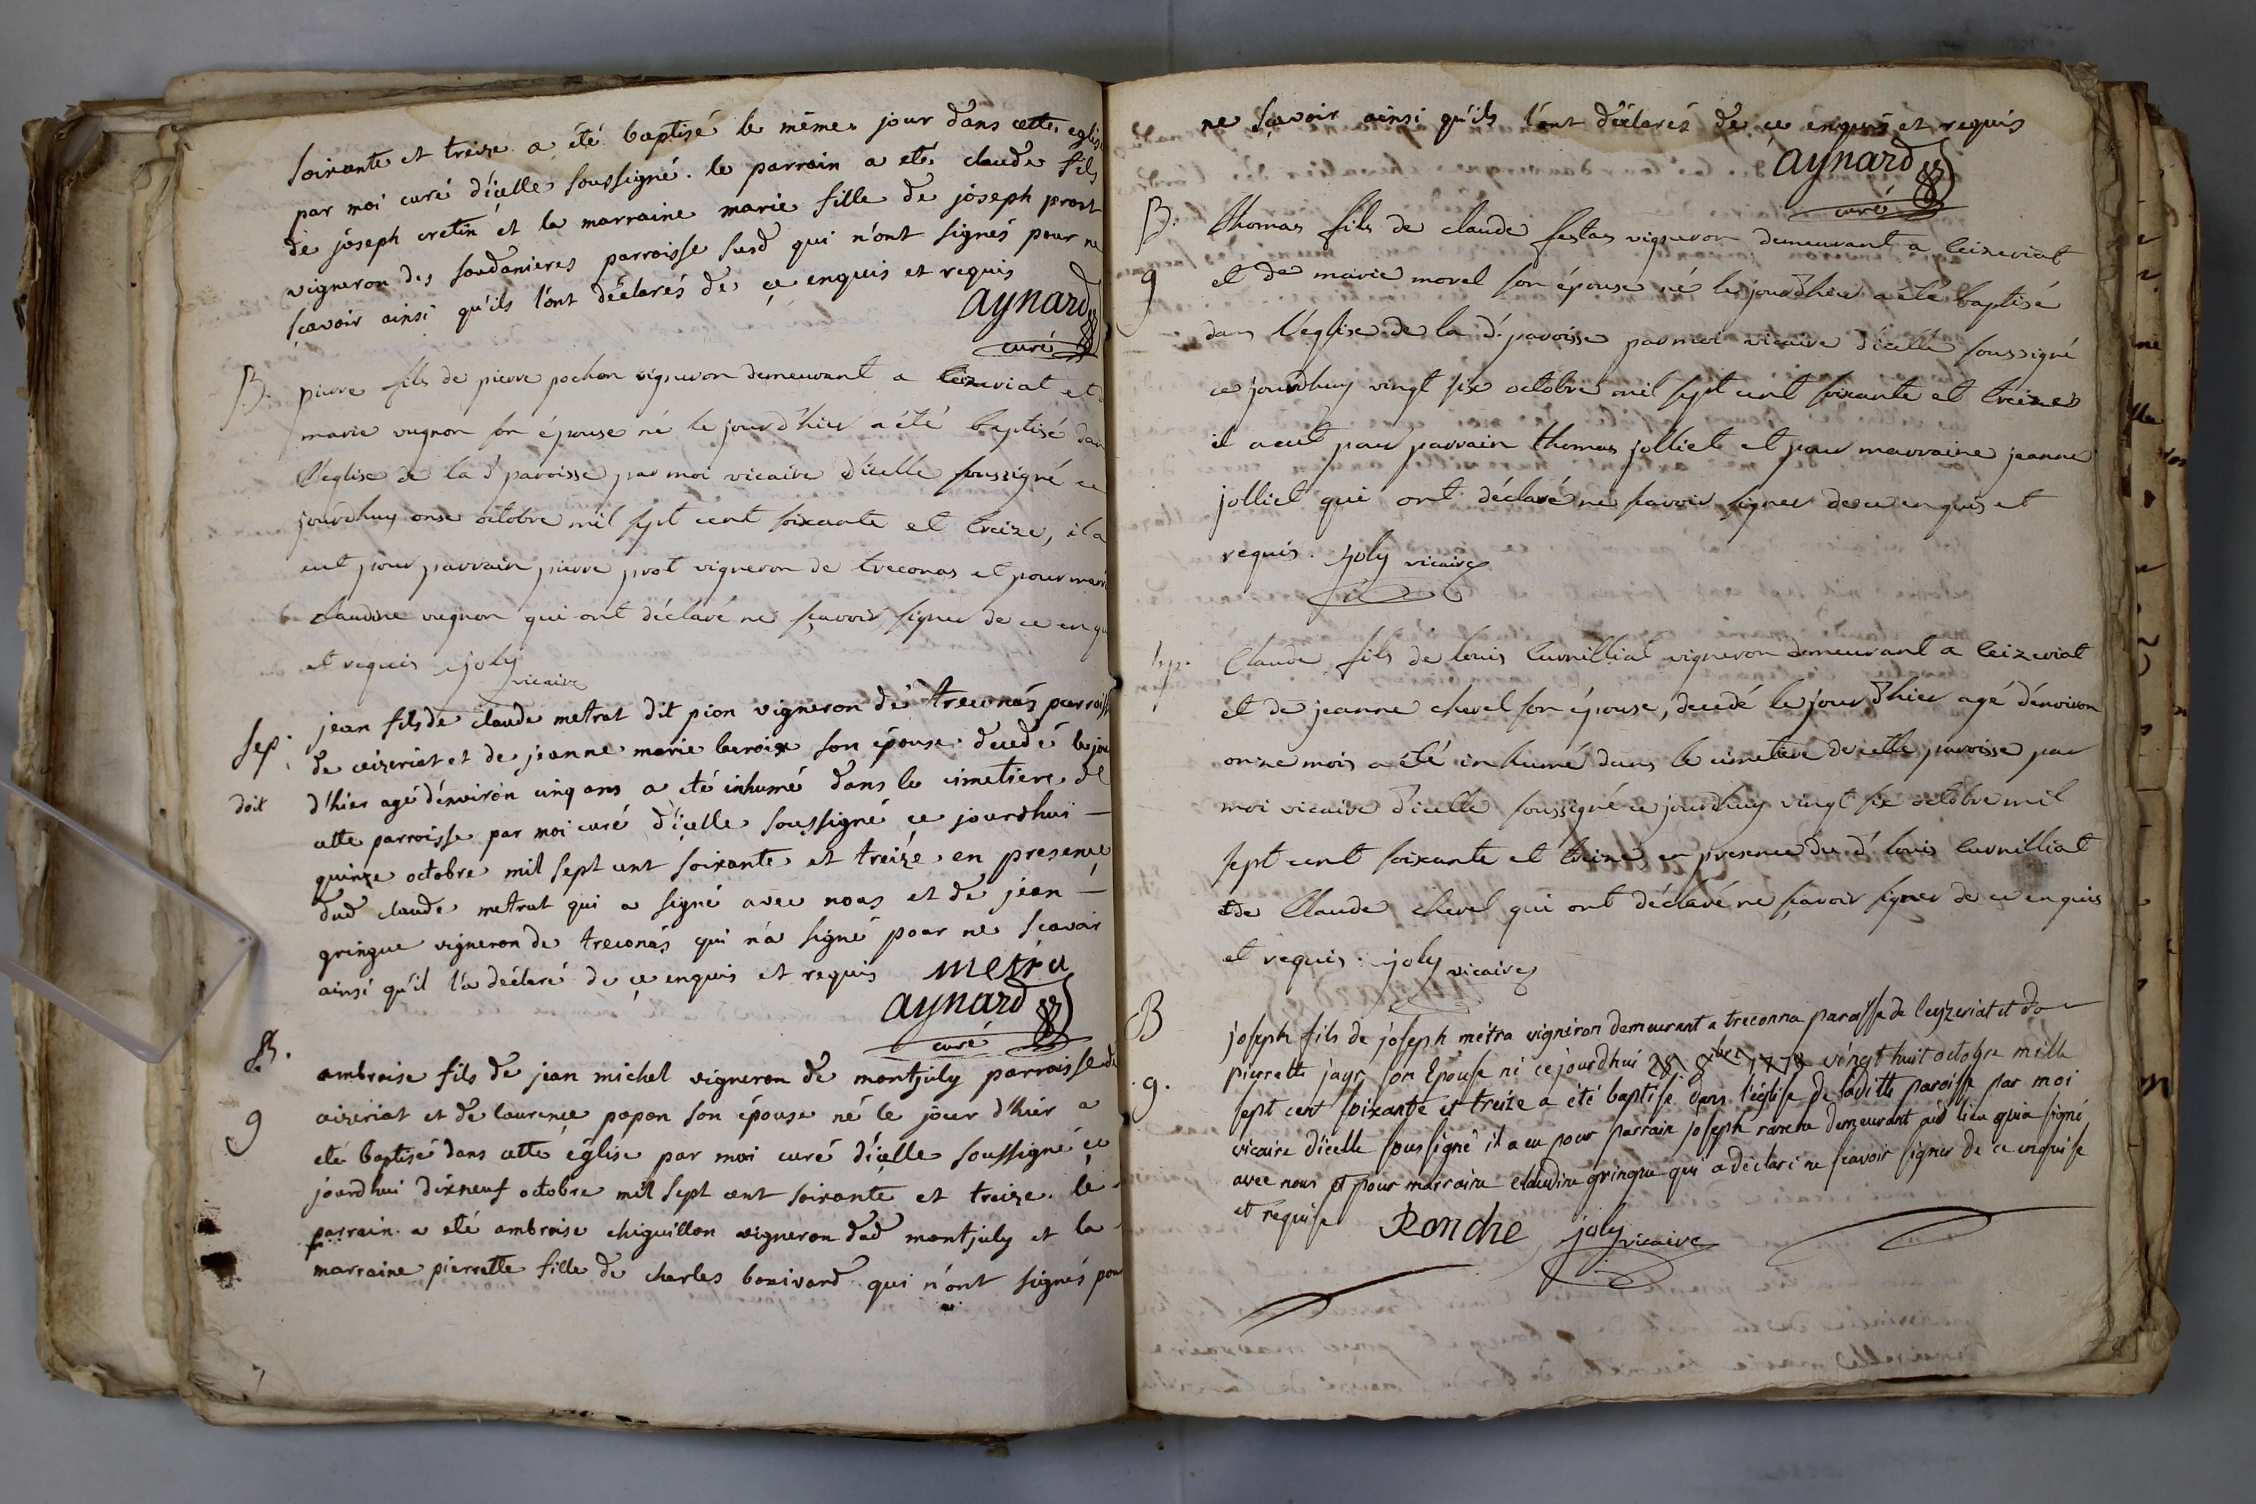 soixante et treize a été baptisé le même jour dans cette eglis
par moi curé d'icelle soussigné. le parrain a été claude fils
de joseph cretin et la marraine marie fille de joseph prost
vigneron des soudanieres parroisse susd qui n'ont signés pour ne
sçavoir ainsi qu'ils l'ont déclarés de ce enquis et requis
aynard
curé
B. pierre fils de pierre pochon vigneron demeurant a ceizeriat et
marie vugnon son épouse né le jour d'hier a été baptisé dan
l'eglise de la d. paroisse par moi vicaire d'icelle soussigné ce
jourdhuy onse octobre mil sept cent soixante et treize, il a
eut pour parrain pierre prot vigneron de treconas et pour marr
claudine vugnon qui ont déclaré ne sçavoir signer de ce enqu
et requis joly
vicaire
Sep. jean fils de claude metrat dit pion vigneron de treconas parroiss
de ceizeriat et de jeanne marie lacroix son épouse decedé le jou
doit d'hier agé d'environ cinq ans a été inhumé dans le cimetiere de
cette parroisse par moi curé d'icelle soussigné ce jourdhui
quinze octobre mil sept cent soixante et treize en presence
dud claude metrat qui a signé avec nous et de jean
gringue vigneron de treconas qui n'a signé pour ne sçavoir
ainsi qu'il l'a déclaré de ce enquis et requis metra
aynard
curé
B. ambroise fils de jean michel vigneron de montjuly parroisse de
9 ceizeriat et de laurence papon son épouse né le jour d'hier a
été baptisé dans cette église par moi curé d'icelle soussigné ce
jourdhui dixneuf octobre mil sept cent soixante et treize. le
parrain a été ambroise chiguillon vigneron dud montjuly et la
marraine pierrette fille de charles bonivard qui n'ont signés pour
ne sçavoir ainsi qu'ils l'ont déclarés de ce enquis et requis
aynard
curé
B. thomas fils de claude festas vigneron demeurant a ceizeriat
9 et de marie morel son épouse né le jourdhier a été baptisé
dans l'eglise de la d. paroisse par moi vicaire d'icelle soussigné
ce jourdhuy vingt six octobre mil sept cent soixante et treize
il a eut pour parrain thomas jolliet et pour marraine jeanne
jolliet qui ont déclaré ne scavoir signer de ce enquis et
requis. joly vicaire
Sep. Claude fils de louis Curnilliat vigneron demeurant a Ceizeriat
et de jeanne chevel son épouse, decedé le jour d'hier agé d'environ
onze mois a été inhumé dans le cimetiere de cette paroisse par
moi vicaire d'icelle soussigné ce jourdhuy vingt six octobre mil
sept cent soixante et treize en presence du d. louis Curnilliat
et de Claude chevel qui ont déclaré ne sçavoir signer de ce enquis
et requis. joly vicaire
B joseph fils de joseph métra vigneron demeurant a treconna paroisse de Ceyzeriat et de
9. pierrette jayr son Epouse né ce jourdhui 28. 8bre 1773 vingt huit octobre mille
sept cent soixante et treize a été baptisé dans l'église de laditte paroisse par moi
vicaire d'icelle soussigné il a eu pour parrain joseph demeurant aud lieu qui a signé
avec nous et pour marraine claudine gringue qui a déclaré ne scavoir signer de ce enquise
et requise Ronche joly vicaire